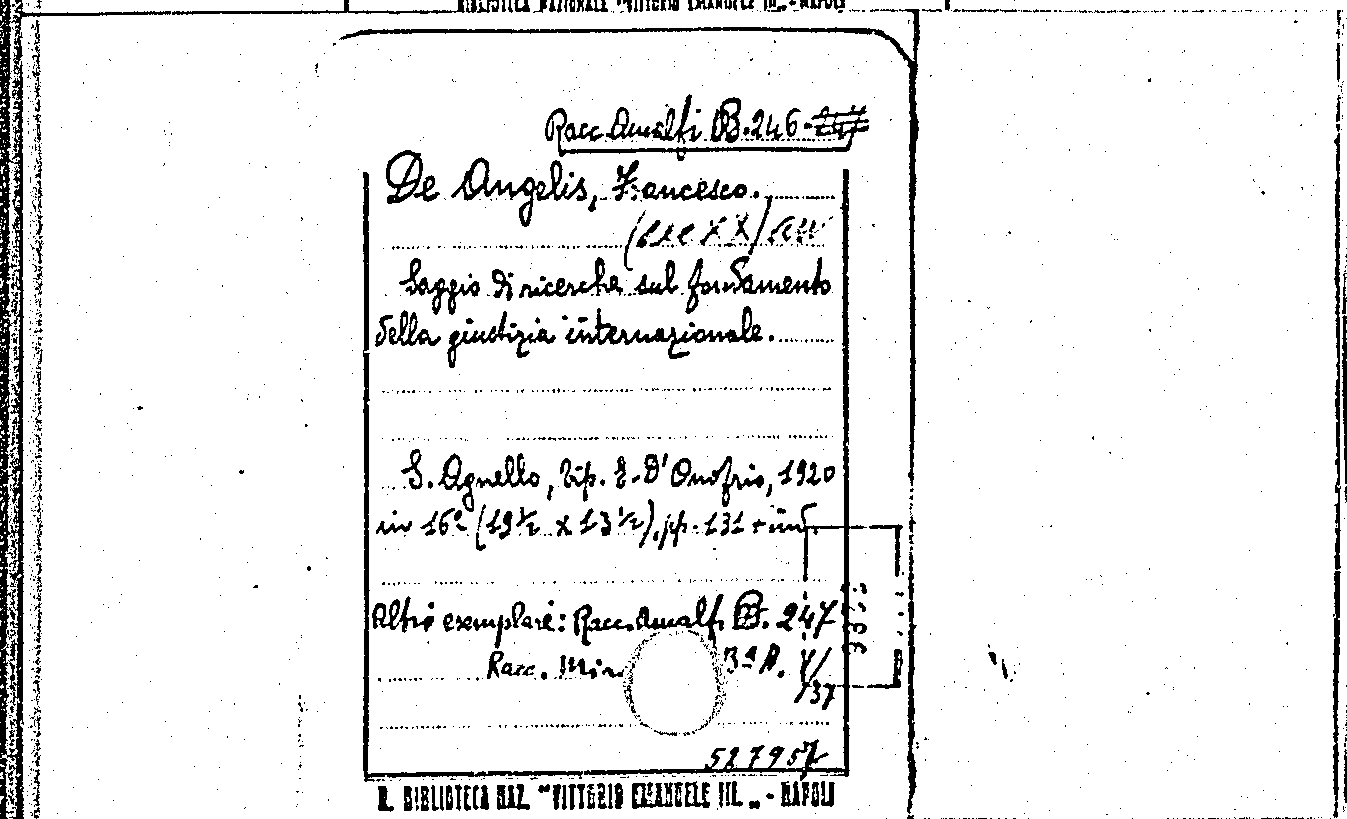 BIBLIOTECA NAZIONALE "VITTORIO EMANUELE III„ - NAPOLI
Racc. Amalfi B. 246-247
De Angelis, Francesco.
(sec XX) 
Saggio di ricerche sul fondamento
della giustizia internazionale.
S. Agnello, Tip. E. D'Onofrio, 1920
in 16º (19½ x 13½), pp. 131 + ind.
Altri esemplari: Racc. Amalfi B. 247
Racc. Min 3ª A. V/
137
527957
R. BIBLIOTECA NAZ. "VITTORIO EMANUELE III. „ - NAPOLI